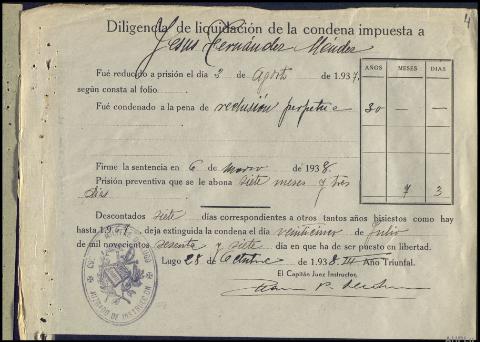 4
Diligencia de liquidación de la condena impuesta a
Jesus Fernández Mendez
Fué reducido a prisión el día 3 de Agosto de 1.937,
según consta al folio
Fué condenado a la pena de reclusión perpetua
AÑOS MESES DIAS
30 — —
Firme la sentencia en 6 de marzo de 193 8.
Prisión preventiva que se le abona siete meses y tres
días
7 3
Descontados siete días correspondientes a otros tantos años bisiestos como hay
hasta 1.967, deja extinguida la condena el día veinticinco de Julio
de mil novecientos sesenta y siete día en que ha de ser puesto en libertad.
Lugo 28 de Octubre de 1.93 8. III Año Triunfal.
El Capitán Juez Instructor,
JUZGADO DE INSTRUCCIÓN